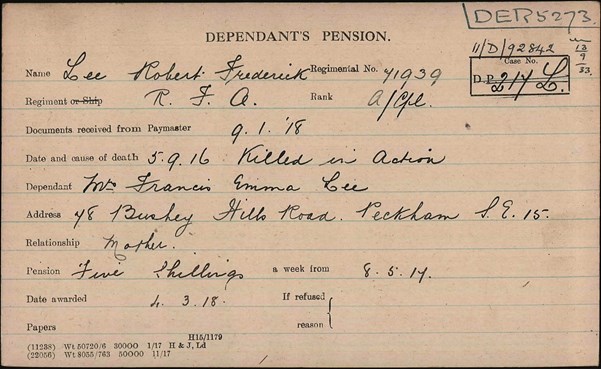 DEP5273.
DEPENDANT'S PENSION.
11/D/92842
13
9
33.
Name Lee Robert Frederick Regimental No. 71939
Case No.
D.P. 217 L.
Regiment or Ship R. F. A. Rank A/Cpl.
Documents received from Paymaster 9.1.'18
Date and cause of death 5.9.16 Killed in Action
Dependant Mrs Francis Emma Lee
Address 78 Bushey Hills Road. Peckham S.E. 15.
Relationship Mother.
Pension Five Shillings a week from 8.5.17.
Date awarded 4.3.18. If refused
reason
Papers
H15/1179
(11238) Wt 50720/6 30000 1/17 H & J, Ld
(22056) Wt 8055/763 50000 11/17